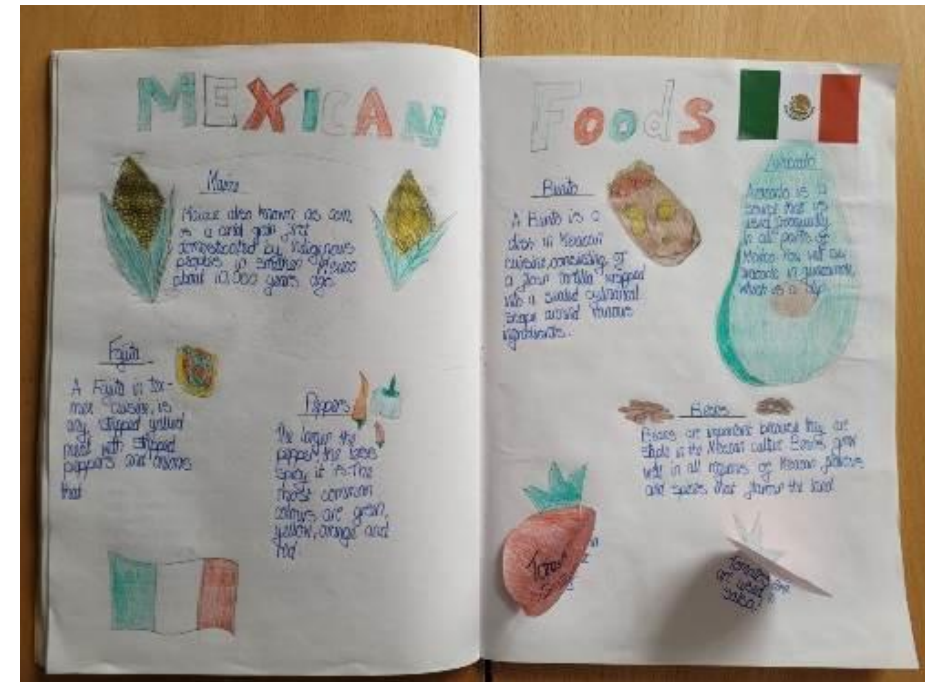 MEXICAN
Maize
Maize also known as corn,
is a grain first
domesticated by indigenous
peoples in southern Mexico
about 10,000 years ago
Fajita
A Fajita in tex-
mex cuisine, is
any stripped grilled
meat with stripped
peppers and onions
that
Peppers
The larger the
pepper the less
spicy it is. The
most common
colours are green,
yellow, orange and
red
FOODS
Burrito
A Burrito is a
dish in Mexican
cuisine, consisting of
a flour tortilla wrapped
into a sealed cylindrical
shape around various
ingredients.
Avocado
Avocado is a
that is
used frequently
in all parts of
Mexico. You will
avocado in guacamole,
which is a dip
Beans
Beans are important because they are
staple in the Mexican culture. Beans grow
well in all regions of Mexican
and spices that flavour the
Tomatoes
are used
salsa!